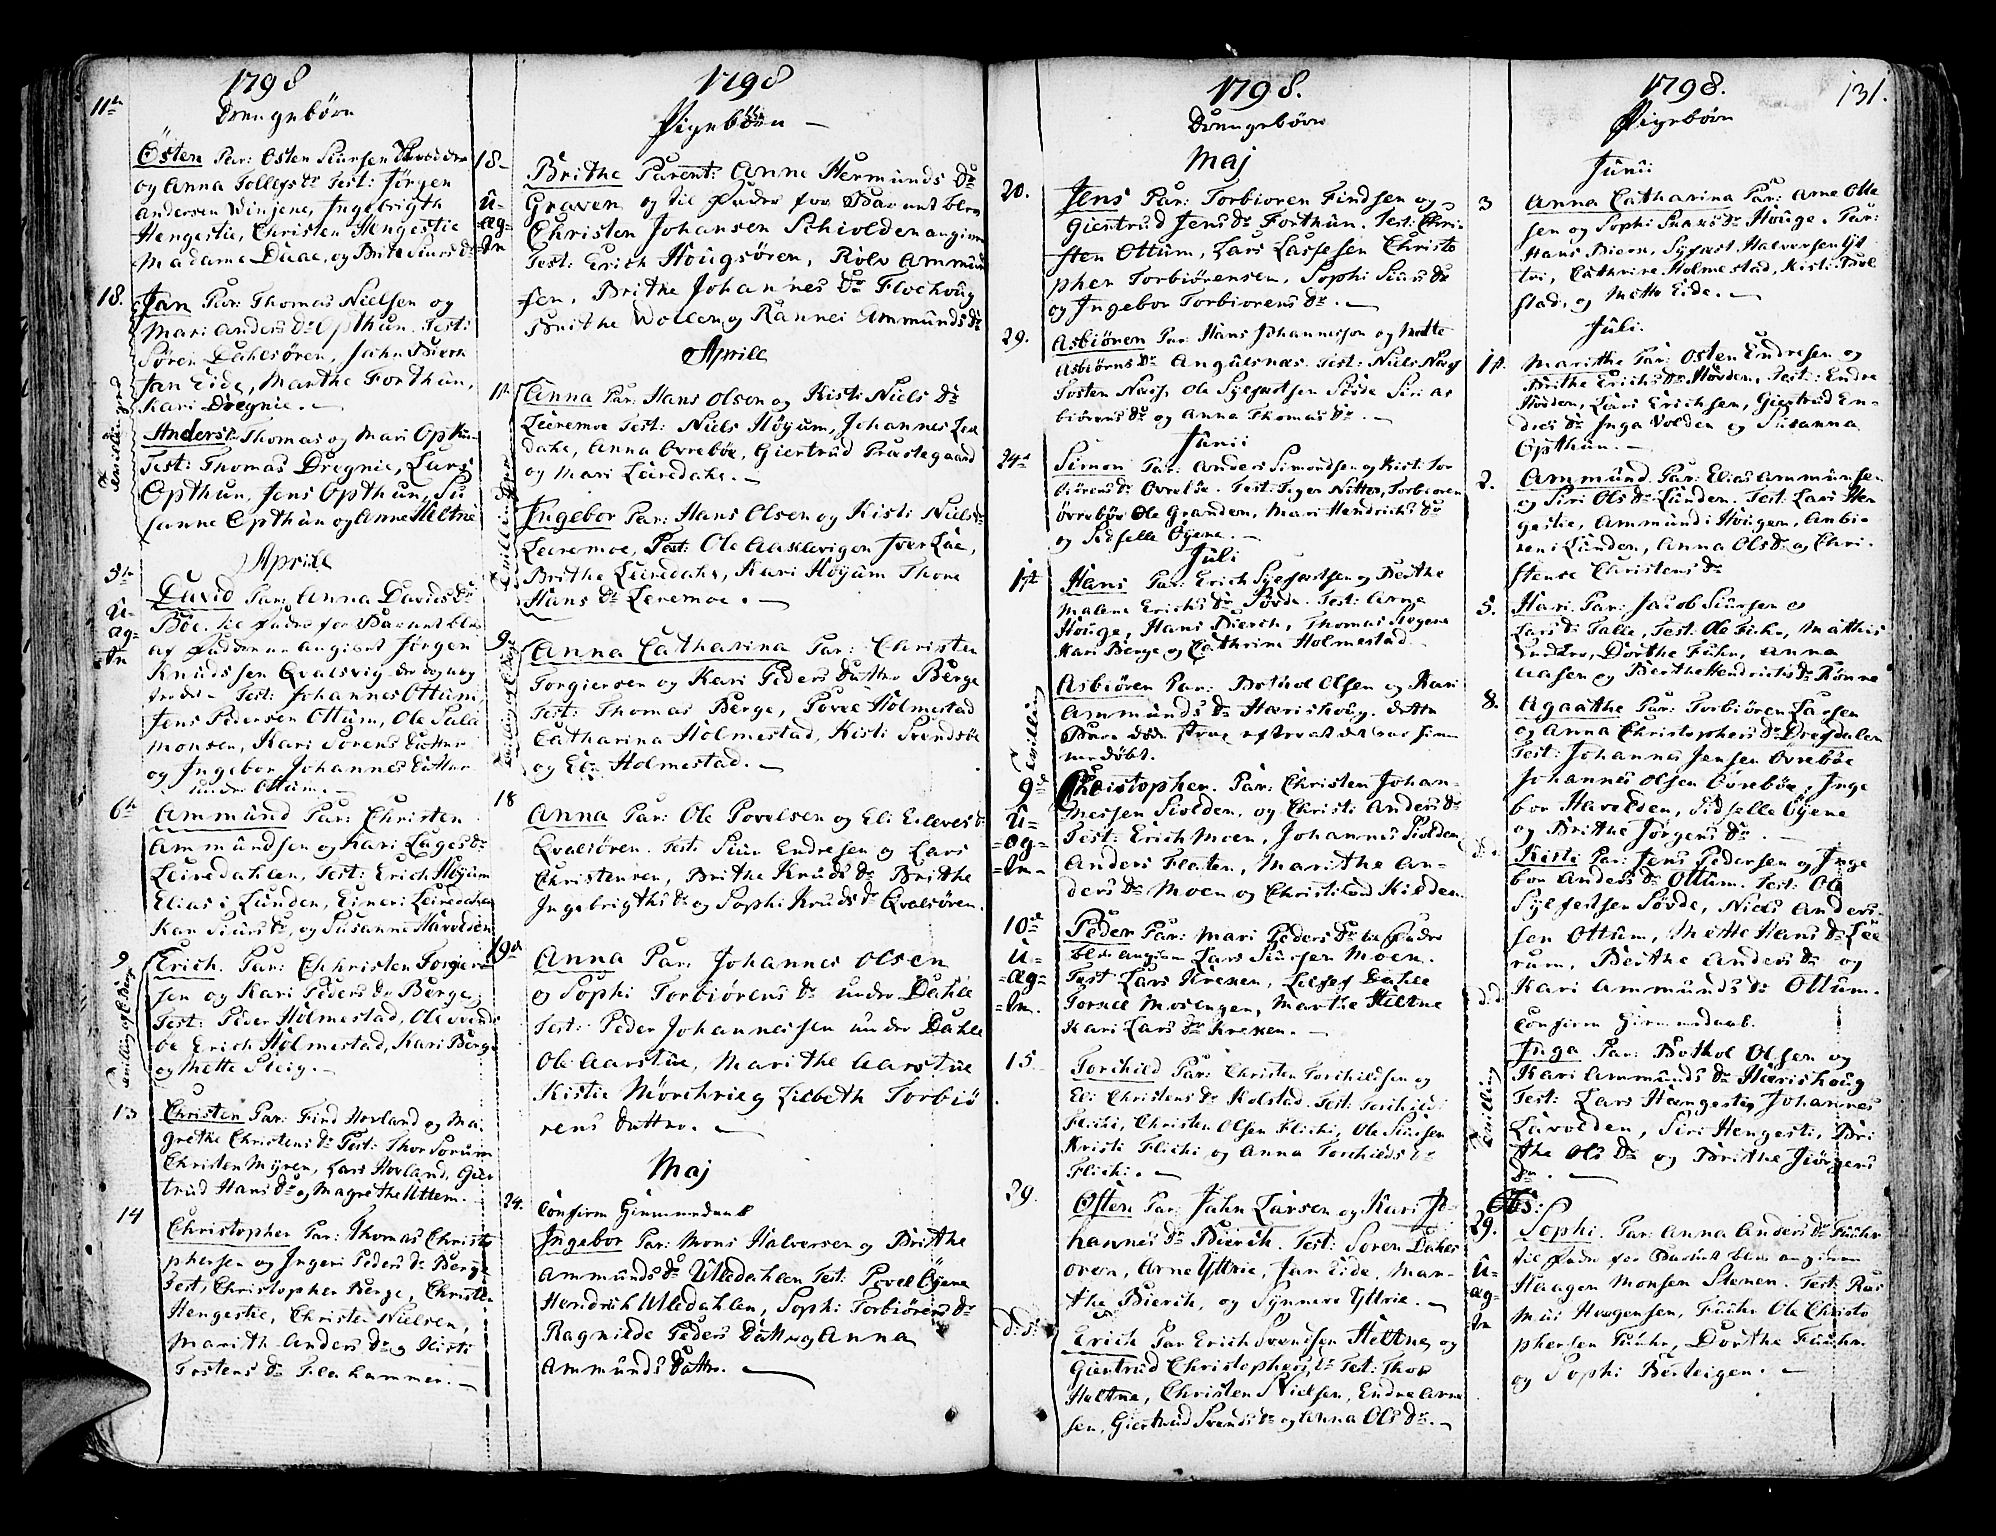 1798
Drengebørn
11te
Østen Par: Osten Siursen
og Anna Tollefs Dr Test: Jørgen
Andersen Winjene, Ingebrigth
Hengestie, Christen Hengestie
Madame Daae, og Brite Siurs Dr
18. Jan Par: Thomas Nielsen og
Mari Anders Dr Opthun. Test:
Søren Dahlsøren, John Bierk
Jan Eide, Marthe Forthun,
Kari Dregnie. —
Tvillinger
Anders P: Thomas og Mari Opthun
Test: Thomas Dregnie, Lars
Opthun, Jens Opthun, Su
sanne Opthun og Anne Heltne
Aprill
5te David Par: Anna Davids Dr
U=
Bøe. til Fader for Barnet blev
æg=
af Moderen angivet Jørgen
te
Knudssen Qvalsvig
Test: Johannes Ottum,
Jens Pedersen Ottum, Ole Sala
monsen, Kari Sørens Datter
og Ingebor Johannes Datter
under Ottum. —
6te Ammund Par: Christen
Ammundsen og Kari Lages Dr
Leiredahlen, Test: Erich Høyum
Elias i Lunden, Einer i Leiredahlen
Kari Siurs Dr, og Susanna Harvolden
9 Erich. Par: Christen Torgier
Tvilling af C. Berge
sen og Kari Peders Dr Berge
Test: Peder Holmestad, Ole Svends
øe Erich Holmestad, Kari Berge
og Mette Steig. —
13 Christen Par: Find Hovland og Ma
grethe Christens Dr Test: Thor Sorum
Christen Myren, Lars Hovland, Gier
trud Hans Dr og Magrethe Uttem. —
14
Christopher Par: Thomas Christo
phersen og Ingeri Peders Dr Berge
Test, Christopher Berge, Christen
Hengestie, Christen Nielsen,
Marith Anders Dr og Kisti
Tostens Dr Flahammer. —
1798
Pigebørn —
18 —
Brithe Parent: Anne Hermunds Dr
U=
Graven og til Fader for Barnet blev
æg=
Christen Johansen Schiolden angiven
te
Test: Erich Hougsøren, Rolv Ammund
sen, Brithe Johannes Dr Flochoug
Brithe Wollen og Rannei Ammunds Dr
Aprill
1te Anna Par: Hans Olsen og Kisti Niels Dr
Leiremoe Test: Niels Høyum, Johannes Lei
dahe, Anna Ovrebøe, Giertrud Prestegaard
og Mari Leiredahl. —
Tvillinger
Ingebor Par: Hans Olsen og Kisti Niels Dr
Leiremoe, Test: Ole Aaslevigen Iver Lie,
Brithe Leiredahl, Kari Høyum Thore
Hans Dr Leremoe. —
9 Anna Catharina Par: Christen
Tvilling af C. Berge
Torgiersen og Kari Peders Datter Berge
Test: Thomas Berge, Povel Holmestad
Catharina Holmestad, Kisti Svendsøe
og Eli Holmestad. —
18
Anna Par: Ole Povelsen og Eli Elevens Dr
Qvalsøren. Test: Siur Endresen og Lars
Christensen, Brithe Knuds Dr Brithe
Ingebrigths Dr og Sophi Knuds Dr Qvalsøren.
19de
Anna Par: Johannes Olsen
og Sophi Torbiørens Dr under Dahle
Test: Peder Johannessen under Dahle
Ole Aarstue, Marithe Aarstue
Kistie Mørchri og Lisbeth Torbiø
rens Datter. —
Maj
24. Confirm Giemmedaab
Ingebor Par: Mons Halversen og Brithe
Ammunds Dr Ulledahlen Test: Povel Øyene
Hendrich Ulledahlen, Sophi Torbiørens Dr
Ragnilde Peders Datter og Anna
Ammunds Datter. —
1798.
Drengebørn
Maj
20. Jens Par: Torbioren Findsen og
Giertrud Jens Dr Forthun. Test: Chri-
sten Ottum, Lars Lassesen Christo
pher Torbiørensen, Sophi Siurs Dr
og Ingebor Torbiorens Dr. —
29. Asbiören Par: Hans Johannesson og Mette
Asbiørns Dr Angulsnæs. Test: Niels Næs
Tosten Næss, Ole Syfertsen Søvde Siri As
biørens Dr og Anna Thomas Dr. —
Junii
24de Simon Par: Anders Simondsen og Kisti Tor
biørens Dr Ovrebøe. Test: Inger Nitter, Torbioren
Øvrebøe Ole Granden, Mari Hendrichs Dr
og Sidselle Øyene. —
Juli
1te Hans Par: Erich Syfertsen og Berthe
Malene Erichs Dr Søvde. Test: Arne
Houge, Hans Bierk, Thomas Øyene
Kari Berge og Cathrine Holmestad
Tvilling
Asbiören Par: Botkol Olsen og Kari
Ammunds Dr Hæreshoug. dette
Barn døde strax efter at det var hiem
medøbt.
9de Christopher. Par: Christen Johan-
U=
nessen Siolden, og Christi Anders Dr
=æg=
Test: Erich Moen, Johannes Siolden
=te —
Anders Flaten, Marithe An-
ders Dr Moen og Christi Lad Kilden.
10de Peder Par: Mari Peders Dr til Fader
U=
blev angiven Lars Siursen Moen.
=æg=
Test Lars Krexen, Lilef Dahle
=te.
Tomel Mosengen, Marthe Heltne
Kari Lars Dr Krexen. —
15 Torchild Par: Christen Torchildsen og
Eli Christens Dr Kolstad. Test: Torchild i
Flichi, Christen Olsen Flichi, Ole Siursen
Kristi Flichi og Anna Torchilds Dr
Flichi. —
29. Østen Par: John Larsen og Kari Jo-
hannes Dr Bierch. Test: Soren Dahls
øren, Arne Yttrie, Jan Eide, Mar-
the Bierch, og Synneve Yttrie. —
d:d: Erich Par Erich Svendsen Heltne, og
Giertrud Christophers Dr Test: Thor
Heltne, Christen Nielsen, Endre Arne
sen, Giertrud Svends Dr og Anna Ols Dr. —
1798.
131.
Pigebørn
Junii
3 Anna Catharina Par: Arne Olle
sen og Sophi Siurs Dr Houge. Par:
Hans Bierk, Syfert Halversen Yt
tri, Cathrine Holmestad, Kisti Bol
stad, og Mette Eide. —
Juli.
1te. Marithe Par: Osten Endresen og
Brithe Erichs Dr Hovden, Test: Endre
Hovden, Lars Erichsen, Giertrud En-
dres Dr Inga Volden og Susanna
Opthun. —
2. Ammund Par: Elias Ammundsen
og Siri Ols Dr Lunden. Test: Lars Hen
gestie, Ammund i Hougen, Anbi-
ren i Lunden, Anna Ols Dr og Chri-
stense Christens Dr
5. Kari. Par: Jacob Siursen og
Lars Dr Talle, Test: Ole Fuhr, Mathis
Endre, Dorthe Fuhr, Anna
Aasen og Berthe Hendrichs Dr Rønne
8. Agaathe Par: Torbiören Larsen
og Anna Christophers Dr Dregdalen
Test: Johannes Jensen Ovrebøe
Johannes Olsen Övreböe, Inge
bor Harvolden, Sidselle Öyene
og Brithe Jørgens Dr —
d:d: Kisti Par: Jens Pedersen og Inge
bor Anders Dr Ottum. Test: Ole
Syfertsen Søvde, Niels Anders-
sen Ottum, Mette Hans Dr Lee
rum, Berthe Anders Dr og
Kari Ammunds Dr Ottum.
d:d: Confirm Hiemmedaab.
Tvilling
Inga Par: Botkol Olsen og
Kari Ammunds Dr Hæreshoug
Test: Lars Hængestie, Johannes
Leirolden, Siri Hengesti, Bri
the Ols Dr og Brithe Jiörgens
Dr —
Obs:
29. Sophi. Par: Anna Anders Dr Fuuhr
til Fader for Barnet blev angiven
U=
Haagen Monsen Stenen. Test: Ras
æg=
mus Haagensen, Fuuhr Ole Christo
te
phersen Fuuhr, Dorthe Fuuhr
og Sophi Berteigen. —